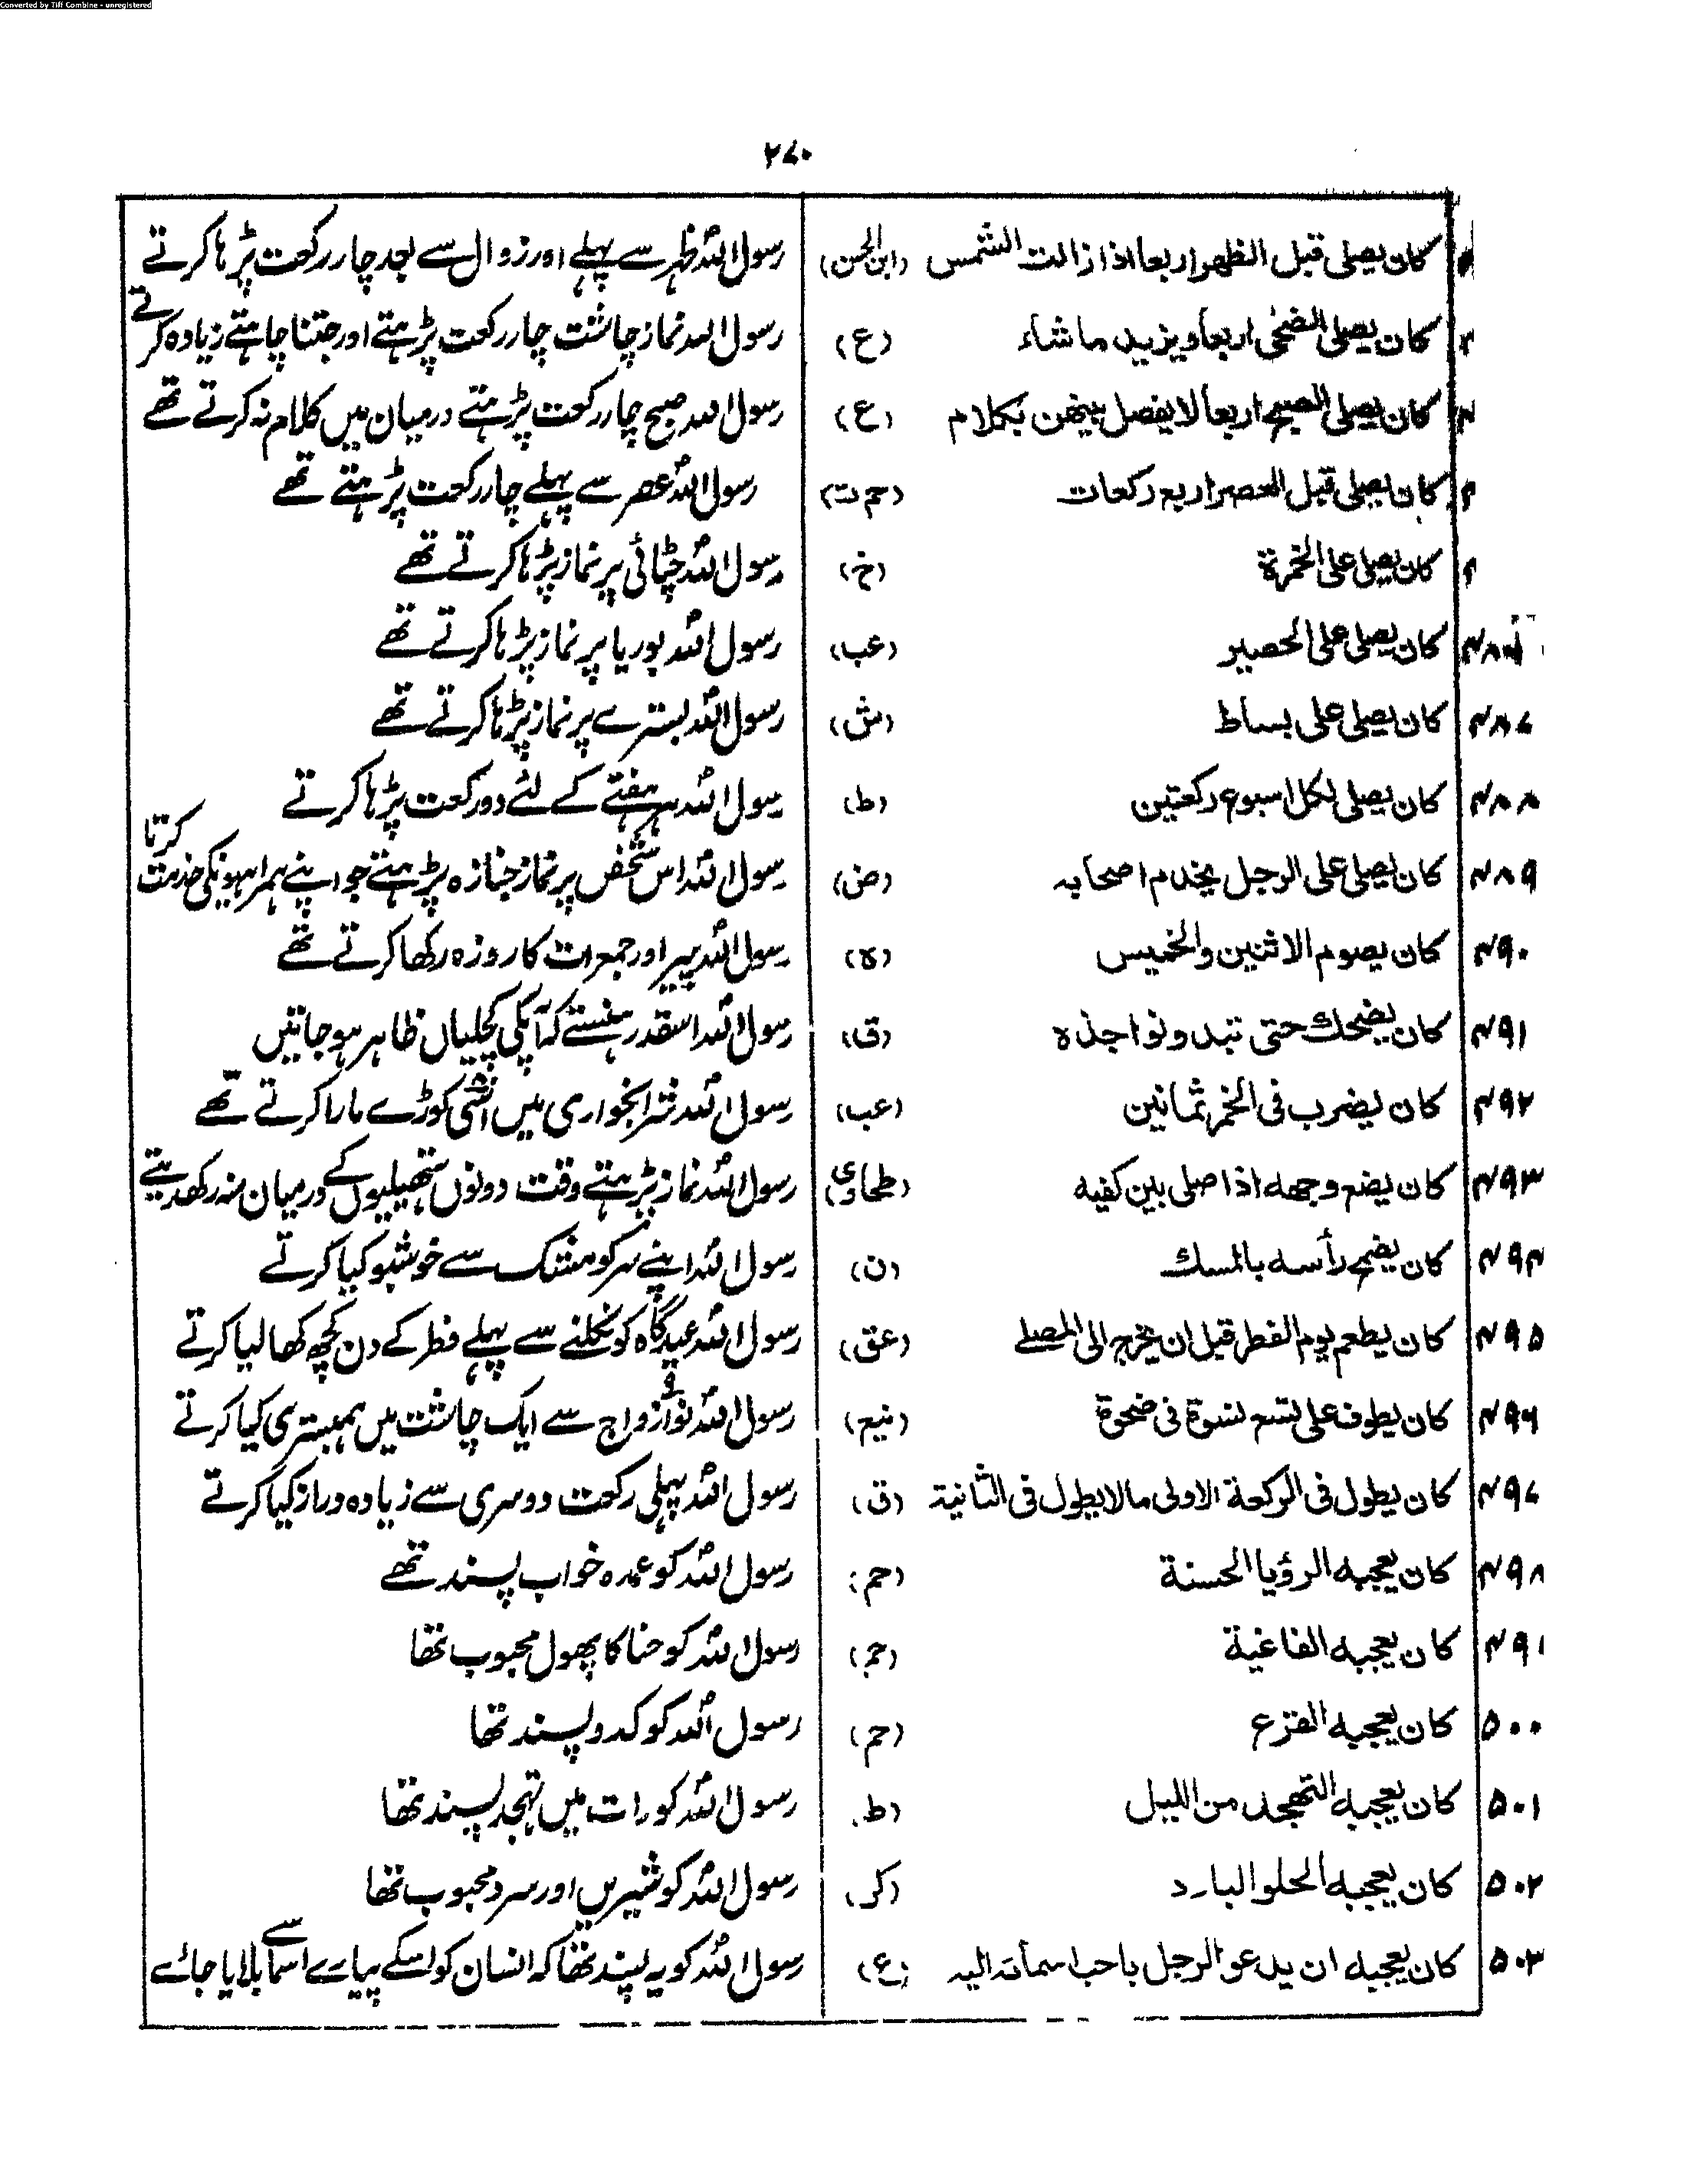 Converted by Tiff Combine - unregistered
۲۷۰
كان يصلى قبل الظهر اربعا اذا زالت الشمس (ابن الحسن) رسول اللہؐ ظہر سے پہلے اور زوال سے بعد چار رکعت پڑہا کرتے
كان يصلى الضحٰى اربعا ويزيد ما شاء (ع) رسول اللہ نماز چاشت چار رکعت پڑہتے اور جتنا چاہتے زیادہ کرتے
كان يصلى الصبح اربعاً لا يفصل بينهن بكلام (ع) رسول اللہ صبح چار رکعت پڑہتے درمیان میں کلام نہ کرتے تھے
كان يصلى قبل العصر اربع ركعات (حم ت) رسول اللہؐ عصر سے پہلے چار رکعت پڑہتے تھے
كان يصلى على الخمرة (خ) رسول اللہؐ چٹائی پر نماز پڑہا کرتے تھے
كان يصلى على الحصير (عب) رسول اللہؐ بوریا پر نماز پڑہا کرتے تھے
۴۸۷ كان يصلى على بساط (ش) رسول اللہؐ بسترے پر نماز پڑہا کرتے تھے
۴۸۸ كان يصلى لكل اسبوع ركعتين (ط) رسول اللہؐ ہر ہفتے کے لئے دو رکعت پڑہا کرتے
۴۸۹ كان يصلى على الرجل يخدم اصحابه (ض) رسول اللہؐ اس شخص پر نماز جنازہ پڑہتے جو اپنے ہمراہیونکی خدمت کرتا
۴۹۰ كان يصوم الاثنين والخميس (ه) رسول اللہؐ پیر اور جمعرات کا روزہ رکھا کرتے تھے
۴۹۱ كان يضحك حتى تبدو نواجذه (ق) رسول اللہؐ اسقدر ہنستے کہ آپکی کچلیاں ظاہر ہو جاتیں
۴۹۲ كان يضرب فى الخمر ثمانين (عب) رسول اللہؐ شرابخواری میں اسّی کوڑے مارا کرتے تھے
۴۹۳ كان يضع وجهه اذا صلى بين كفيه (طحاوى) رسول اللہؐ نماز پڑہتے وقت دونوں ہتھیلیوں کے درمیان منہ رکھدیتے
۴۹۴ كان يضمخ رأسه بالمسك (ن) رسول اللہؐ اپنے سر کو مشک سے خوشبو کیا کرتے
۴۹۵ كان يطعم يوم الفطر قبل ان يخرج الى المصلے (عق) رسول اللہؐ عیدگاہ کو نکلنے سے پہلے فطر کے دن کچھ کھا لیا کرتے
۴۹۶ كان يطوف على تسع نسوة فى ضحوة (منيع) رسول اللہؐ نو ازواج سے ایک چاشت میں ہمبستری کیا کرتے
۴۹۷ كان يطول فى الركعة الاولى ما لا يطول فى الثانية (ق) رسول اللہؐ پہلی رکعت دوسری سے زیادہ دراز کیا کرتے
۴۹۸ كان يعجبه الرؤيا الحسنة (حم) رسول اللہؐ کو عمدہ خواب پسند تھے
۴۹ كان يعجبه الفاغية (حم) رسول اللہؐ کو حنا کا پھول محبوب تھا
۵۰۰ كان يعجبه القرع (حم) رسول اللہؐ کو کدو پسند تھا
۵۰۱ كان يعجبه التهجد من الليل (ط) رسول اللہؐ کو رات میں تہجد پسند تھا
۵۰۲ كان يعجبه الحلو البارد (كر) رسول اللہؐ کو شیریں اور سرد محبوب تھا
۵۰۳ كان يعجبه ان يدعو الرجل باحب اسمائه اليه (ع) رسول اللہؐ کو یہ پسند تھا کہ انسان کو اسکے پیارے اسما سے بلایا جائے